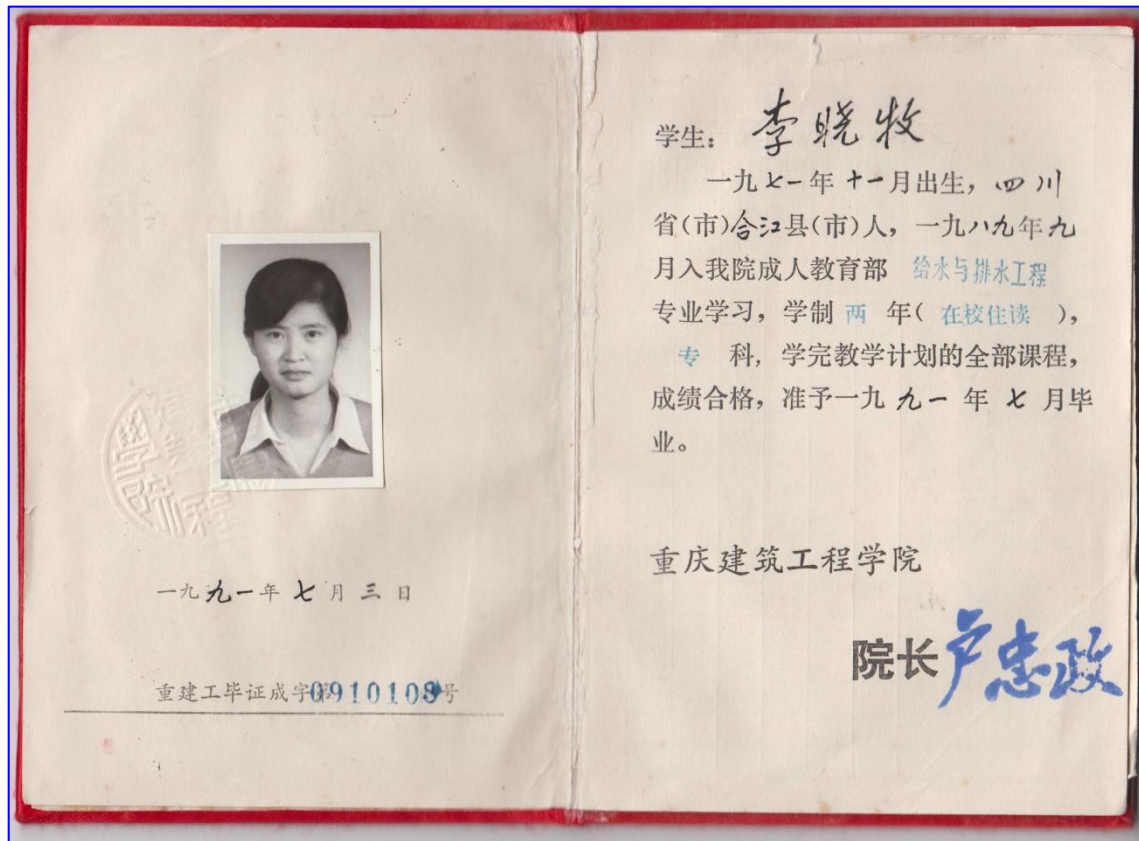 一九九一年七月三日
重建工毕证成字第0910108号
学生：李晓牧
一九七一年十一月出生，四川
省（市）合江县（市）人，一九八九年九
月入我院成人教育部 给水与排水工程
专业学习，学制 两 年（在校住读），
专 科，学完教学计划的全部课程，
成绩合格，准予一九九一年七月毕
业。
重庆建筑工程学院
院长卢忠政